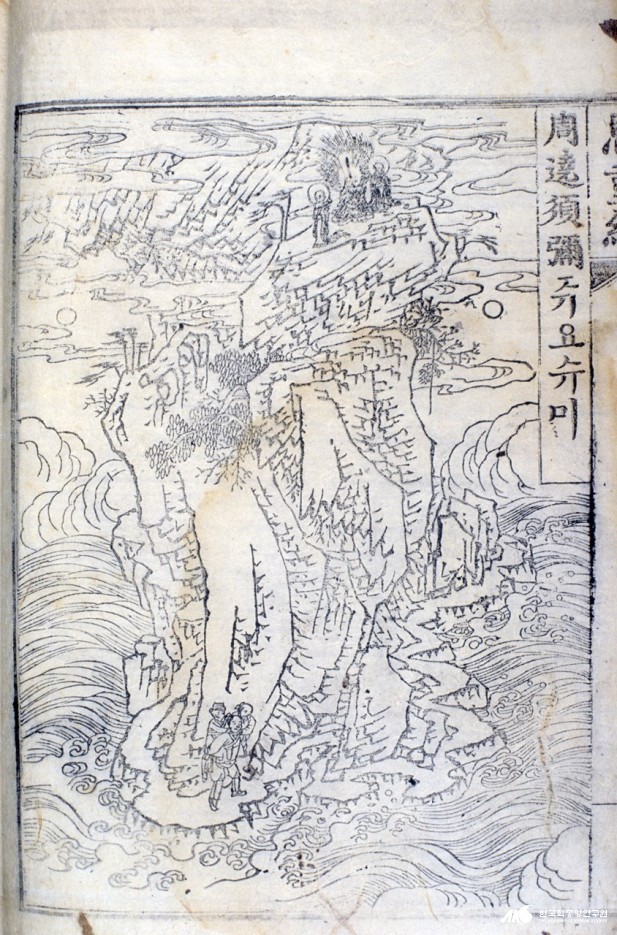 恩重經
周遶須彌쥬요슈미
한국학중앙연구원